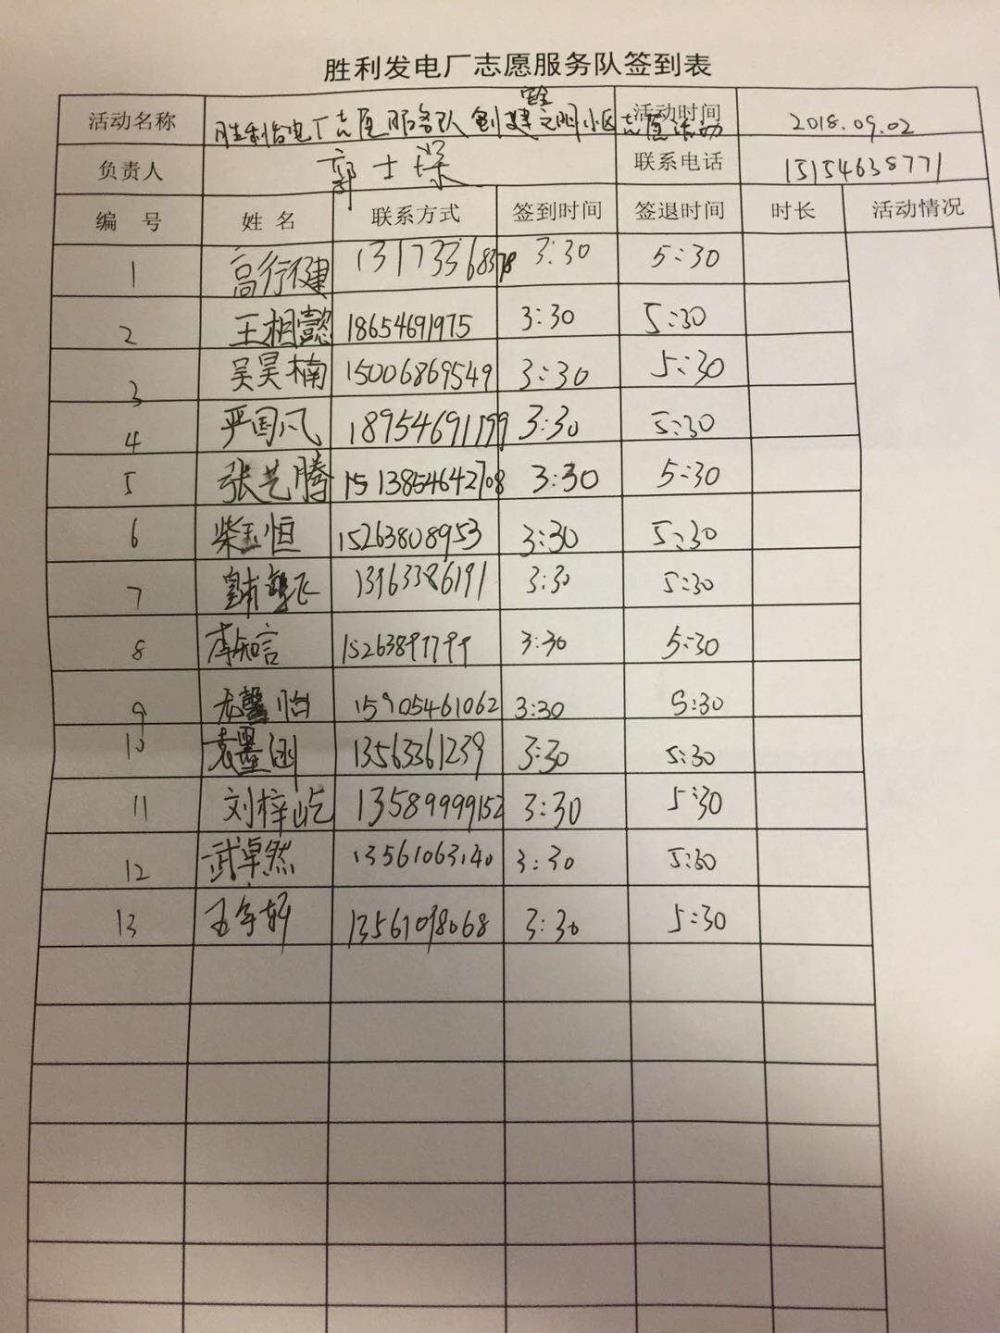 胜利发电厂志愿服务队签到表
活动名称 胜利发电厂志愿服务队创建文明小区志愿活动 活动时间 2018.09.02
负责人 郭士琛 联系电话 15154638771
编 号 姓 名 联系方式 签到时间 签退时间 时长 活动情况
1 高行健 13173368378 3:30 5:30
2 王相懿 18654691975 3:30 5:30
3 吴昊楠 15006869549 3:30 5:30
4 严国凡 18954691199 3:30 5:30
5 张艺腾 15 13854642708 3:30 5:30
6 柴玉恒 15263808953 3:30 5:30
7 13963386191 3:30 5:30
8 李知言 15263891799 3:30 5:30
9 尤馨怡 15905461062 3:30 5:30
10 袁墨涵 13563361239 3:30 5:30
11 刘梓屹 13589999152 3:30 5:30
12 武卓然 13561063140 3:30 5:30
13 13561098068 3:30 5:30